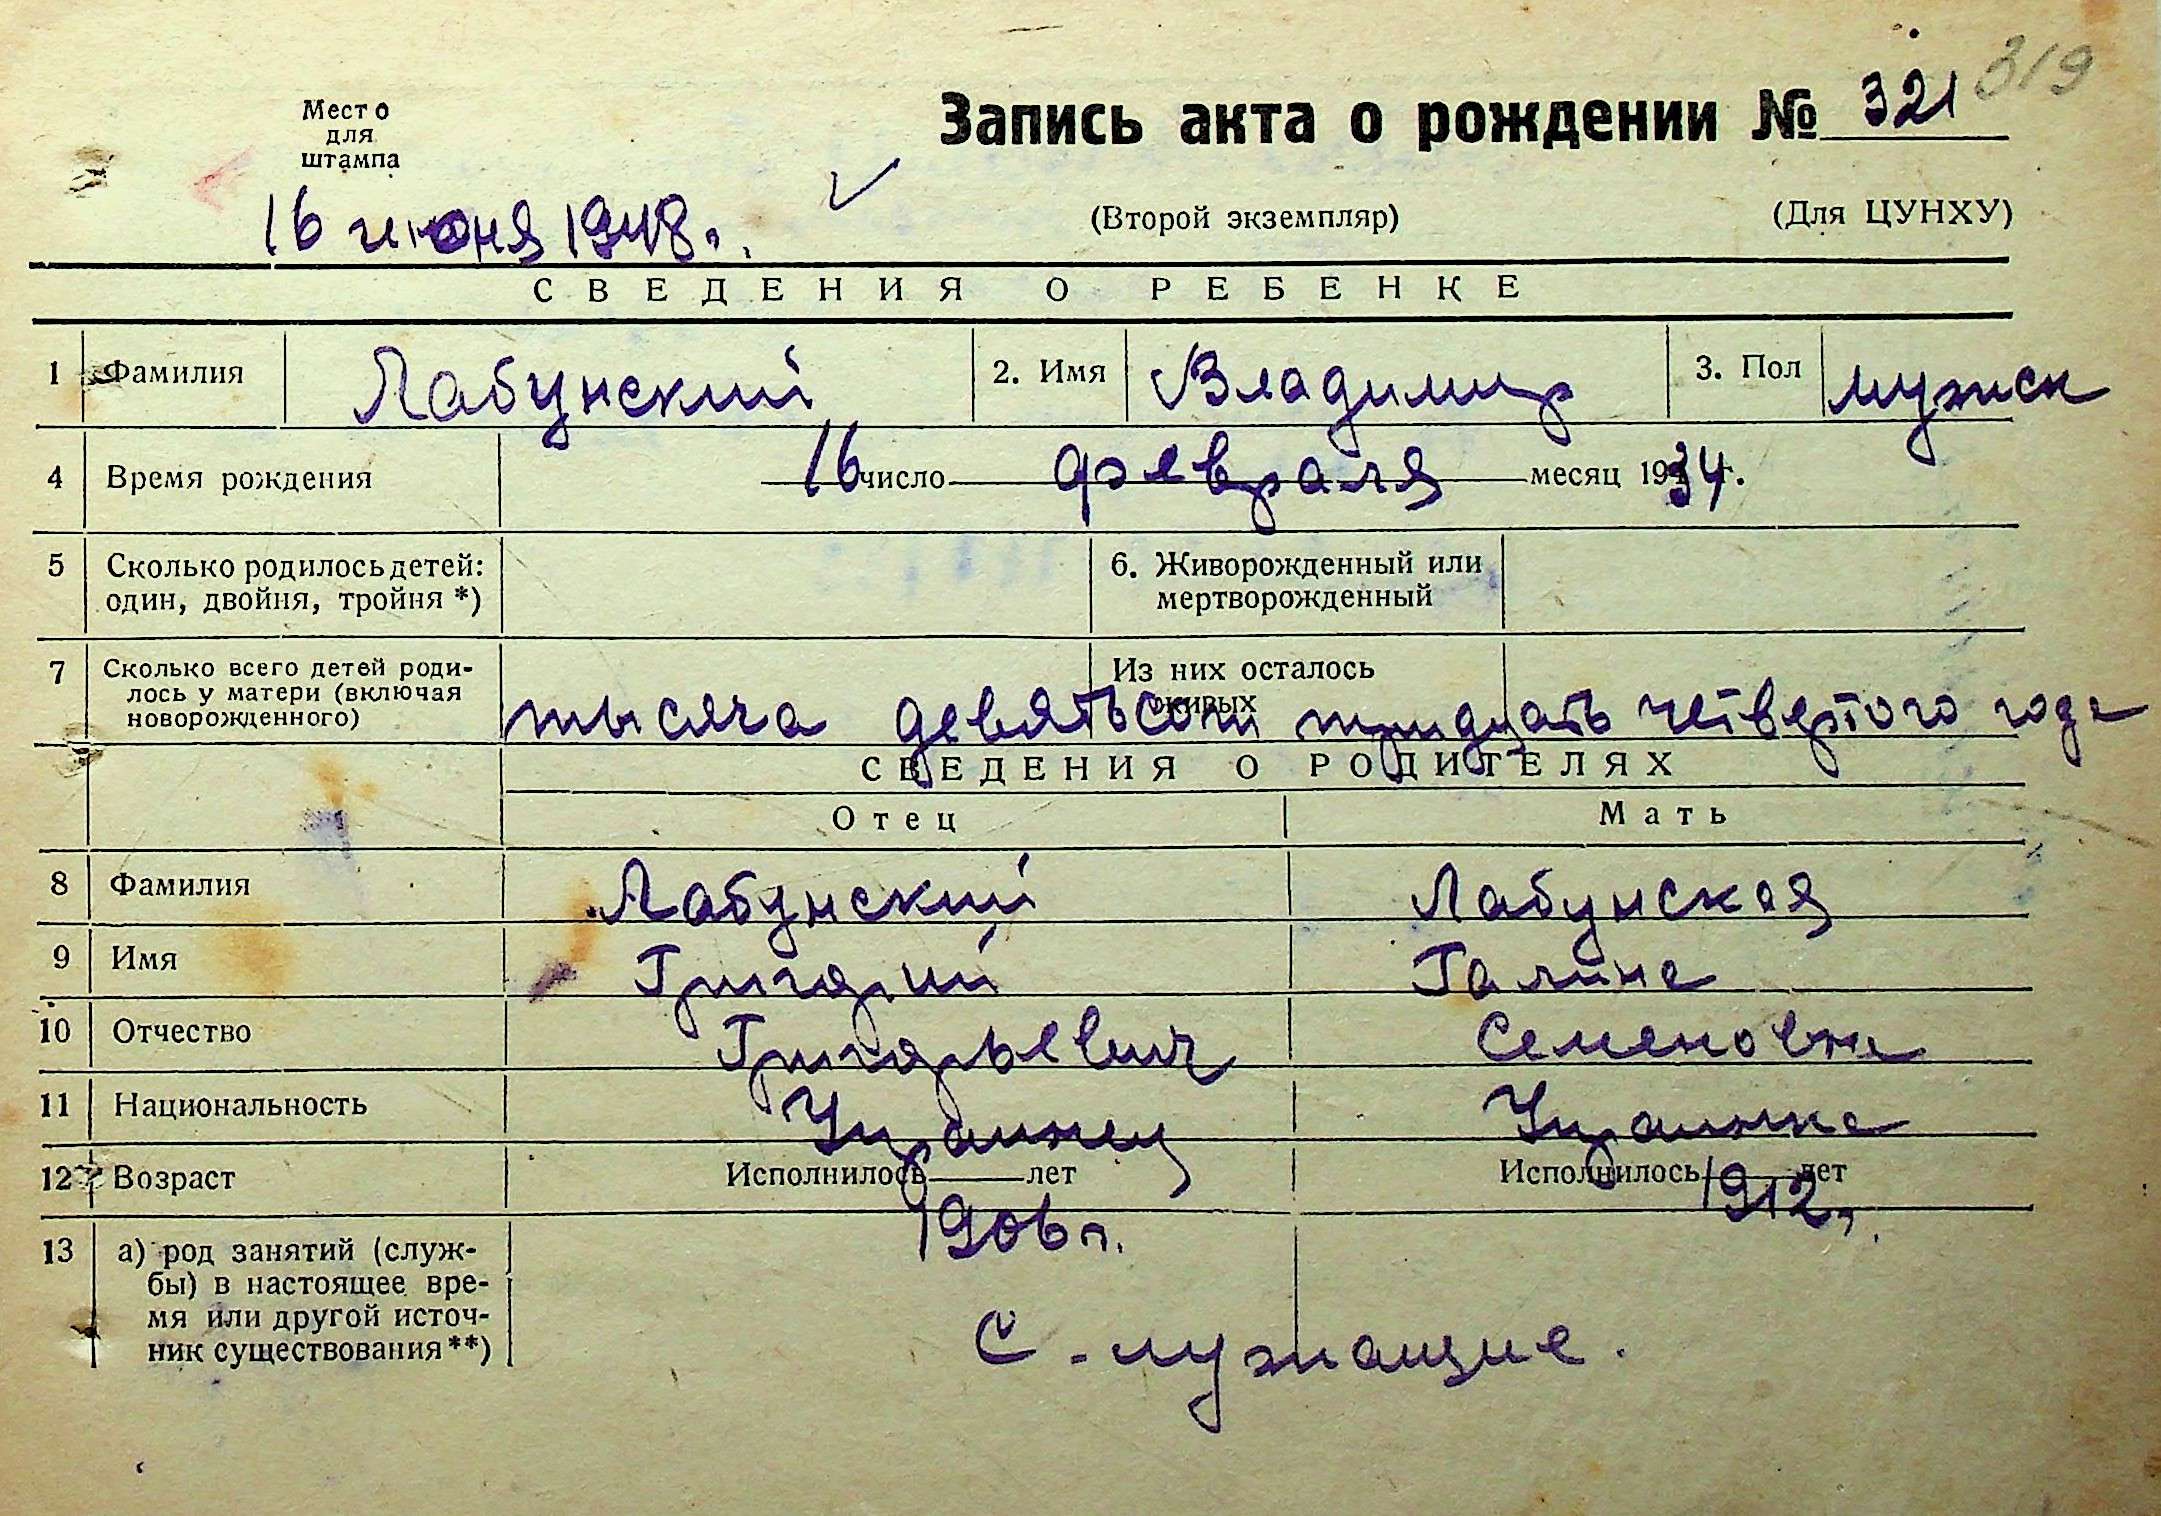 319
Место
для
штампа
Запись акта о рождении № 321
16 июня 1948 г.
(Второй экземпляр) (Для ЦУНХУ)
СВЕДЕНИЯ О РЕБЕНКЕ
1 Фамилия Лабунский 2. Имя Владимир 3. Пол мужск
4 Время рождения 16 число февраля месяц 1934 г.
5 Сколько родилось детей: 6. Живорожденный или
один, двойня, тройня *) мертворожденный
7 Сколько всего детей роди- Из них осталось
лось у матери (включая живых
новорожденного)
тысяча девятьсот тридцать четвертого года
СВЕДЕНИЯ О РОДИТЕЛЯХ
Отец Мать
8 Фамилия Лабунский Лабунская
9 Имя Григорий Галина
10 Отчество Григорьевич Семеновна
11 Национальность Украинец Украинка
12 Возраст Исполнилось лет Исполнилось лет
1906 г. 1912 г.
13 а) род занятий (служ-
бы) в настоящее вре-
мя или другой источ-
ник существования **)
Служащие.